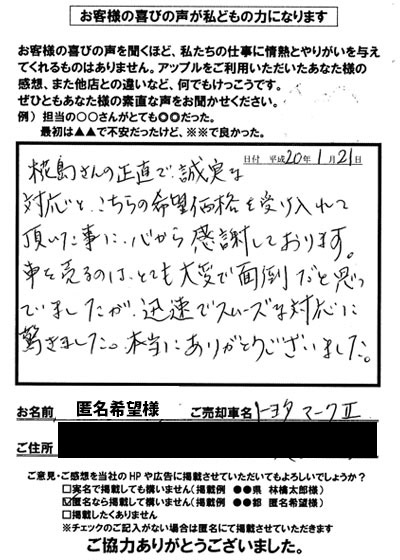 お客様の喜びの声が私どもの力になります
お客様の喜びの声を聞くほど、私たちの仕事に情熱とやりがいを与え
てくれるものはありません。アップルをご利用いただいたあなた様の
感想、また他店との違いなど、何でもけっこうです。
ぜひともあなた様の素直な声をお聞かせください。
例）担当の○○さんがとても◎◎だった。
最初は▲▲で不安だったけど、※※で良かった。
日付 平成20年1月21日
椛島さんの正直で、誠実な
対応と、こちらの希望価格を受け入れて
頂いた事に、心から感謝しております。
車を売るのは、とても大変で面倒だと思っ
ていましたが、迅速でスムーズな対応に
驚きました。本当にありがとうございました。
お名前 匿名希望様 ご売却車名 トヨタ マークⅡ
ご住所
ご意見・ご感想を当社のHPや広告に掲載させていただいてもよろしいでしょうか？
□実名で掲載しても構いません（掲載例 ●●県 林檎太郎様）
☑匿名なら掲載して構いません（掲載例 ●●都 匿名希望様）
□掲載したくありません
※チェックのご記入がない場合は匿名にて掲載させていただきます
ご協力ありがとうございました。